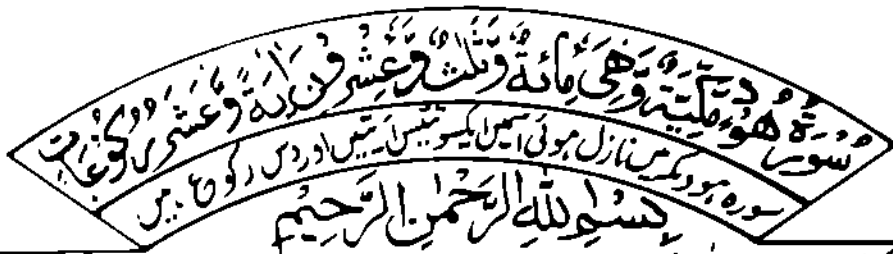 سُوْرَةُ هُوْدٍ مَكِّيَّةٌ وَّهِيَ مِائَةٌ وَّثَلٰثٌ وَّعِشْرُوْنَ اٰيَةً وَّعَشْرُ رُكُوْعَاتٍ
سورہ ہود مکہ میں نازل ہوئی اسمیں ایکسو تیئیس آیتیں اور دس رکوع ہیں
بِسْمِ اللّٰهِ الرَّحْمٰنِ الرَّحِيْمِ